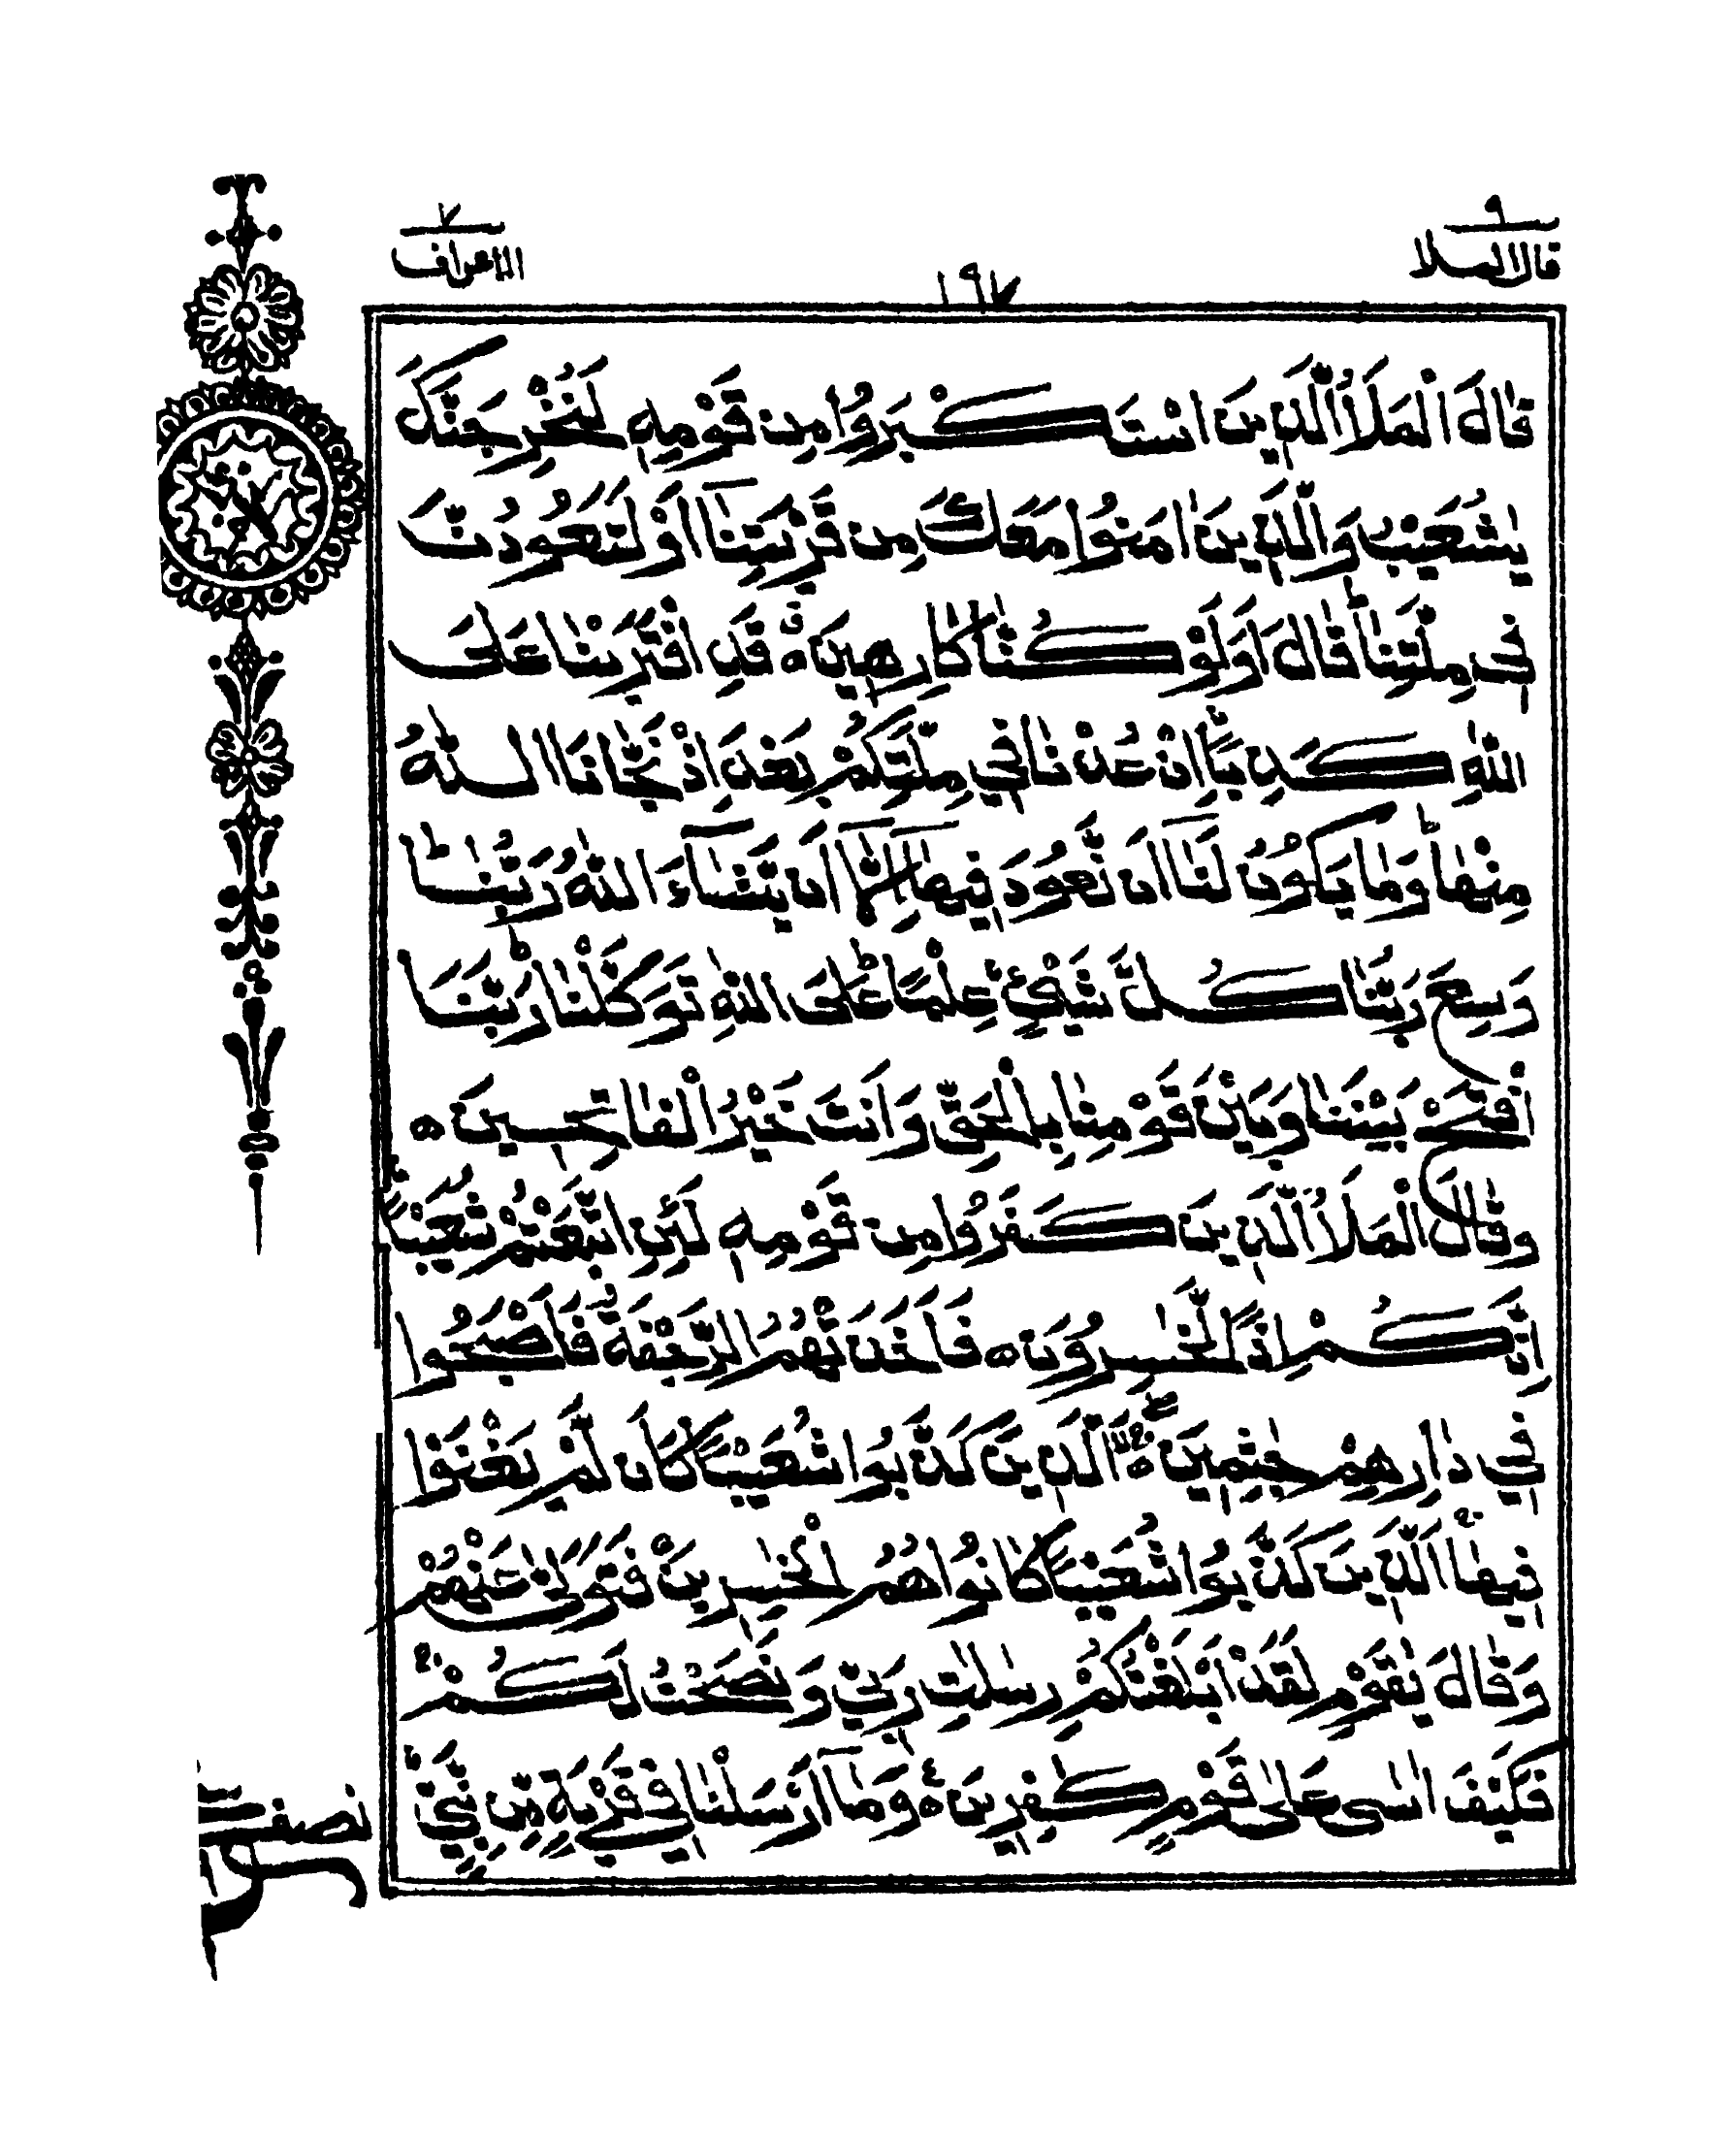 قال الملا ٩
١٩٧
الاعراف ٧
قَالَ الْمَلَاُ الَّذِيْنَ اسْتَكْبَرُوْا مِنْ قَوْمِهٖ لَنُخْرِجَنَّكَ
يٰشُعَيْبُ وَالَّذِيْنَ اٰمَنُوْا مَعَكَ مِنْ قَرْيَتِنَاۤ اَوْ لَتَعُوْدُنَّ
فِيْ مِلَّتِنَاؕ قَالَ اَوَلَوْ كُنَّا كَارِهِيْنَ ۟ۚ قَدِ افْتَرَيْنَا عَلَى
اللّٰهِ كَذِبًا اِنْ عُدْنَا فِيْ مِلَّتِكُمْ بَعْدَ اِذْ نَجّٰىنَا اللّٰهُ
مِنْهَاؕ وَمَا يَكُوْنُ لَنَاۤ اَنْ نَّعُوْدَ فِيْهَاۤ اِلَّاۤ اَنْ يَّشَآءَ اللّٰهُ رَبُّنَاؕ
وَسِعَ رَبُّنَا كُلَّ شَيْءٍ عِلْمًاؕ عَلَى اللّٰهِ تَوَكَّلْنَاؕ رَبَّنَا
افْتَحْ بَيْنَنَا وَبَيْنَ قَوْمِنَا بِالْحَقِّ وَاَنْتَ خَيْرُ الْفَاتِحِيْنَ ۟
وَقَالَ الْمَلَاُ الَّذِيْنَ كَفَرُوْا مِنْ قَوْمِهٖ لَىِٕنِ اتَّبَعْتُمْ شُعَيْبًا
اِنَّكُمْ اِذًا لَّخٰسِرُوْنَ ۟ فَاَخَذَتْهُمُ الرَّجْفَةُ فَاَصْبَحُوْا
فِيْ دَارِهِمْ جٰثِمِيْنَ ۟ الَّذِيْنَ كَذَّبُوْا شُعَيْبًا كَاَنْ لَّمْ يَغْنَوْا
فِيْهَا الَّذِيْنَ كَذَّبُوْا شُعَيْبًا كَانُوْا هُمُ الْخٰسِرِيْنَ ۟ فَتَوَلّٰى عَنْهُمْ
وَقَالَ يٰقَوْمِ لَقَدْ اَبْلَغْتُكُمْ رِسٰلٰتِ رَبِّيْ وَنَصَحْتُ لَكُمْ
فَكَيْفَ اٰسٰى عَلٰى قَوْمٍ كٰفِرِيْنَ ۟ وَمَاۤ اَرْسَلْنَا فِيْ قَرْيَةٍ مِّنْ نَّبِيٍّ
نصف